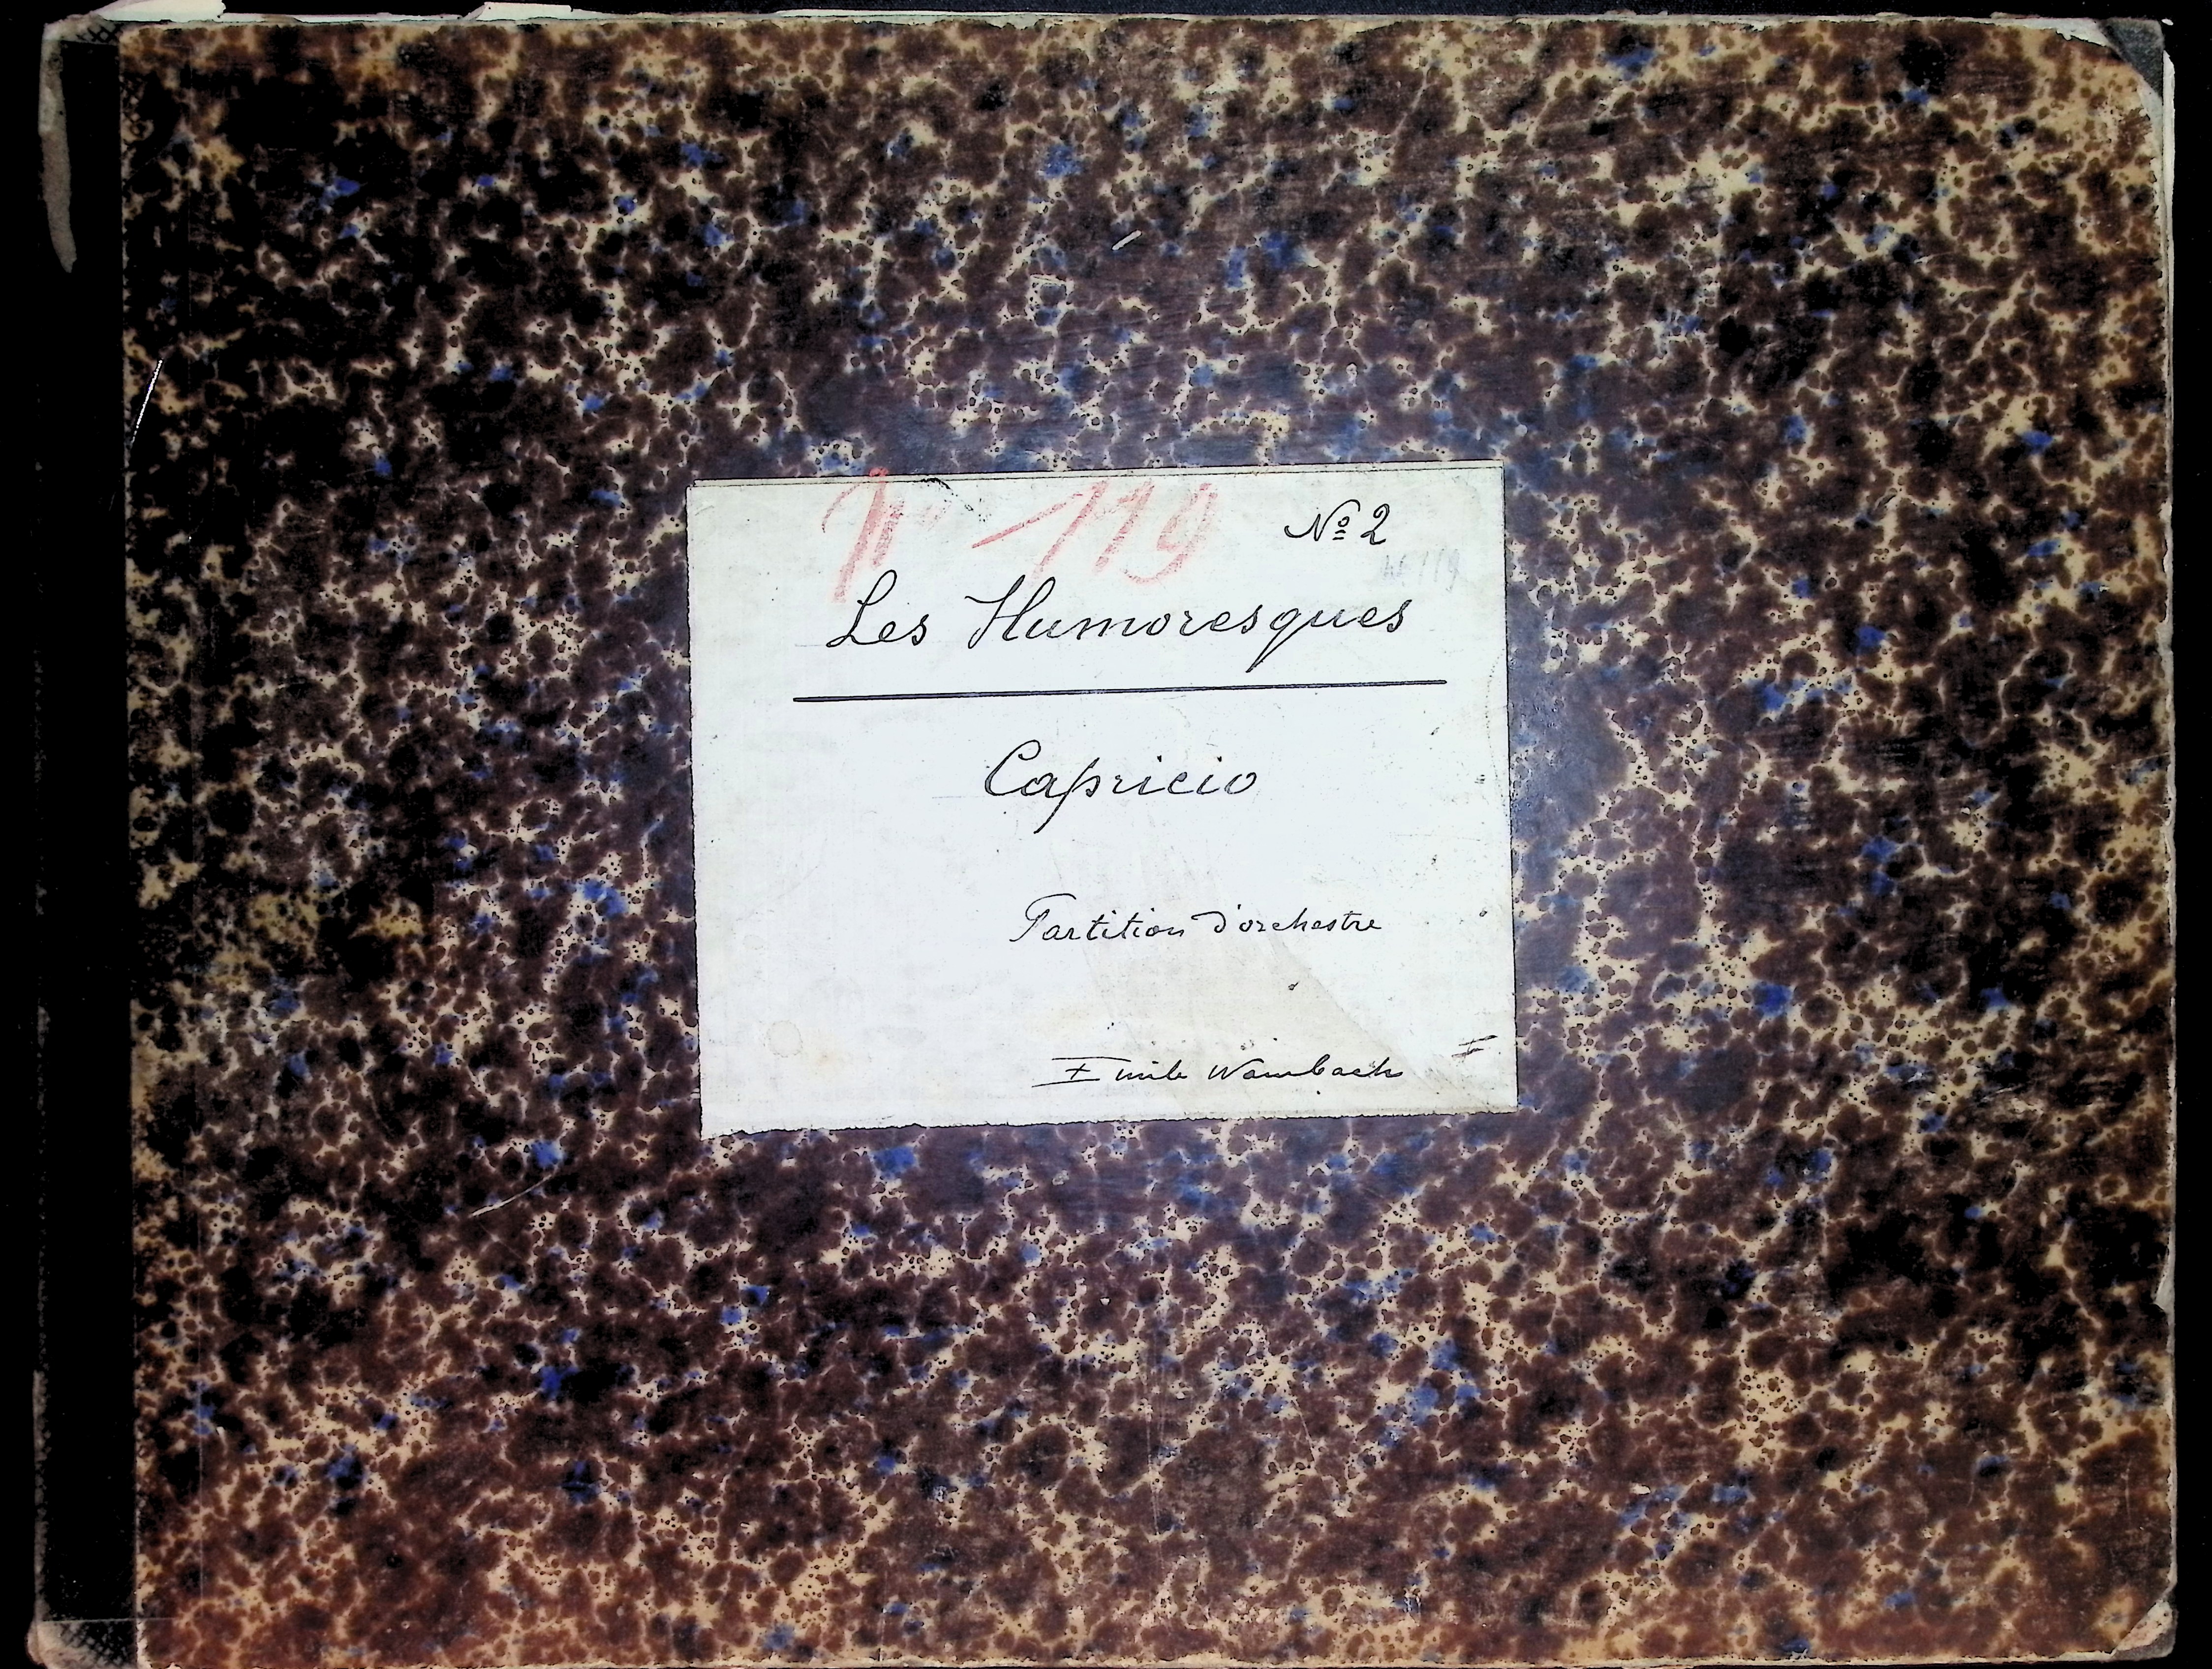 No 119
No 2
W. 119
Les Humoresques
Capricio
Partition d'orchestre
Emile Wambach